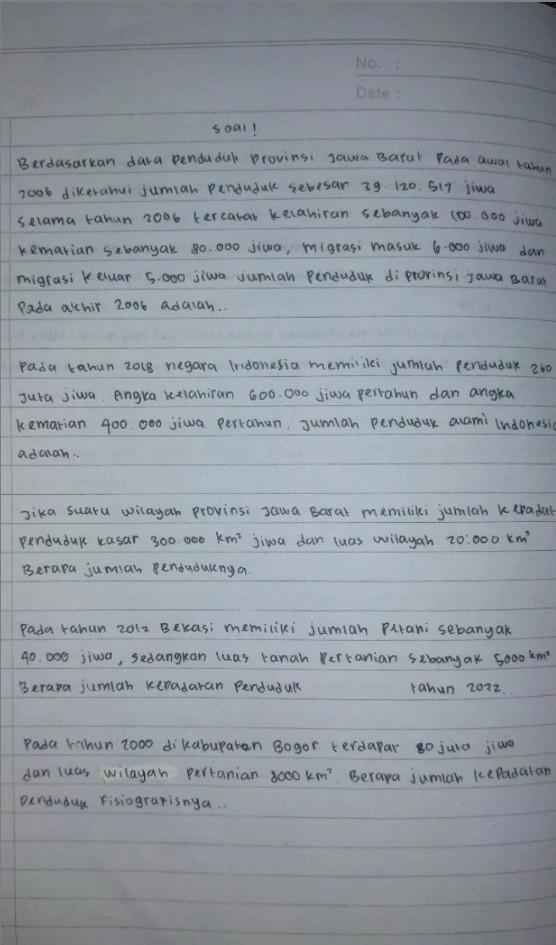 No. :
Date :
soal!
Berdasarkan data penduduk provinsi Jawa Barat Pada awal tahun
2006 diketahui jumlah Penduduk sebesar 39.120.517 jiwa
selama tahun 2006 tercatat kelahiran sebanyak 100.000 jiwa
kematian sebanyak 80.000 jiwa, migrasi masuk 6.000 jiwa dan
migrasi keluar 5.000 jiwa jumlah Penduduk di provinsi Jawa Barat
Pada akhir 2006 adalah..
Pada tahun 2018 negara Indonesia memiliki jumlah penduduk 260
Juta jiwa. Angka kelahiran 600.000 jiwa pertahun dan angka
kematian 400.000 jiwa Pertahun. Jumlah penduduk alami Indonesia
adalah..
Jika suatu wilayah provinsi Jawa Barat memiliki jumlah kepadat
penduduk kasar 300.000 km² jiwa dan luas wilayah 20.000 km²
Berapa jumlah penduduknya.
Pada tahun 2012 Bekasi memiliki jumlah Petani sebanyak
40.000 jiwa, sedangkan luas tanah Pertanian sebanyak 5000 km²
Berapa jumlah kepadatan Penduduk tahun 2022.
Pada tahun 2000 di kabupaten Bogor terdapat 80 juta jiwa
dan luas wilayah pertanian 8000 km². Berapa jumlah kepadatan
penduduk Fisiografisnya..